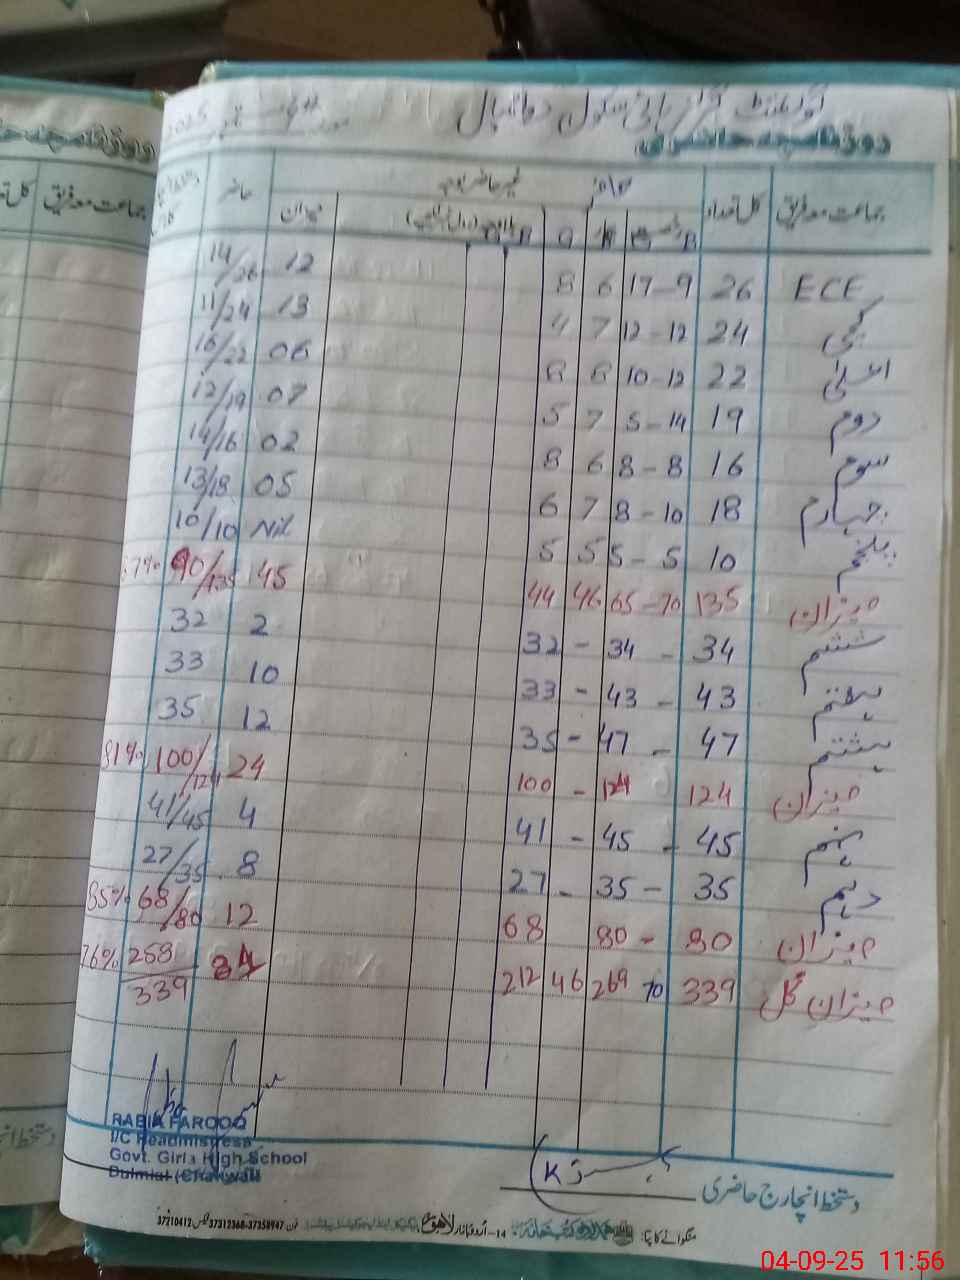 گورنمنٹ گرلز ہائی سکول دوالمیال 4 ستمبر 2025
روزنامچہ حاضری
جماعت معہ فریق کل تعداد حاضر غیر حاضر بوجہ میزان حاضر
B G B G
ECE 26 17-9 6 8 12 14/26
کچی 24 12-12 7 4 13 11/24
اعلیٰ 22 10-12 8 8 06 16/22
دوم 19 5-14 7 5 07 12/19
سوم 16 8-8 6 8 02 14/16
چہارم 18 8-10 7 6 05 13/18
پنجم 10 5-5 5 5 Nil 10/10
میزان 135 65-70 46 44 45 90/135 67%
ششم 34 - 34 - 32 2 32
ہفتم 43 - 43 - 33 10 33
ہشتم 47 - 47 - 35 12 35
میزان 124 124 - 100 24 100/124 81%
نہم 45 - 45 - 41 4 41/45
دہم 35 - 35 - 27 8 27/35
میزان 80 - 80 68 12 68/80 85%
میزان کل 339 70 269 46 212 84 258/339 76%
RABIA FAROOQ
I/C Headmistress
Govt. Girls High School
Dulmial (Chakwal)
دستخط انچارج حاضری
منگوانے کا پتہ: 14-اُردو بازار لاہور فون 37358947-37312368 فیکس 37210412
کل تعداد جماعت معہ فریق
04-09-25 11:56